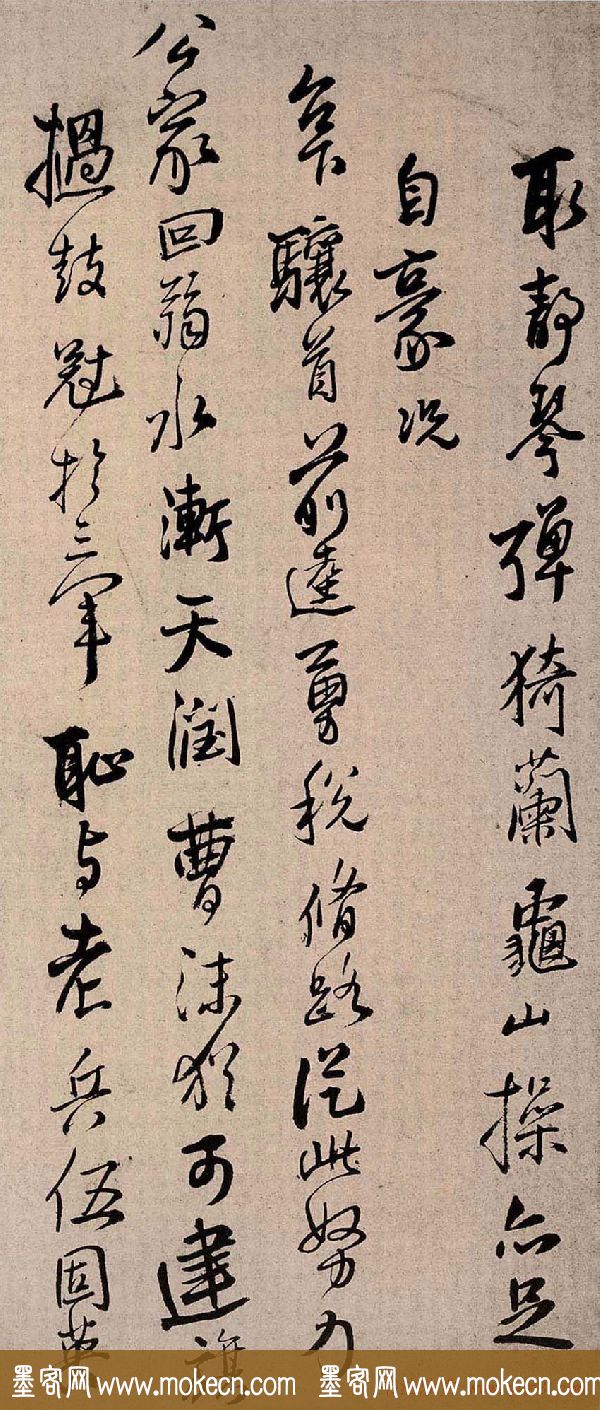 取靜琴彈猗蘭龜山操亦足
自豪况
下驤首前達勇税脩路從此努力
公家回翁水漸天潤曹沫猶可建旗
撾鼓冠於三軍恥与老兵伍固
墨客网 www.mokecn.com 墨客网 www.mokecn.com